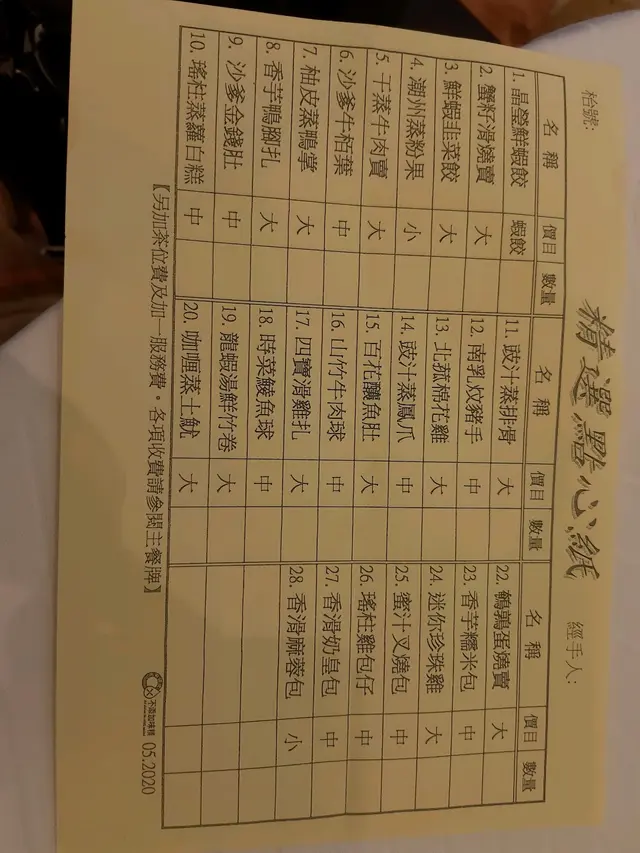 精選點心紙
枱號:
經手人:
名稱 價目 數量 名稱 價目 數量 名稱 價目 數量
1. 晶瑩鮮蝦餃 蝦餃 11. 豉汁蒸排骨 大 22. 鵪鶉蛋燒賣 大
2. 蟹籽滑燒賣 大 12. 南乳炆豬手 中 23. 香芋糯米包 中
3. 鮮蝦韭菜餃 大 13. 北菰棉花雞 大 24. 迷你珍珠雞 大
4. 潮州蒸粉果 小 14. 豉汁蒸鳳爪 中 25. 蜜汁叉燒包 中
5. 干蒸牛肉賣 大 15. 百花釀魚肚 大 26. 瑤柱雞包仔 中
6. 沙爹牛栢葉 中 16. 山竹牛肉球 中 27. 香滑奶皇包 中
7. 柚皮蒸鴨掌 大 17. 四寶滑雞扎 大 28. 香滑麻蓉包 小
8. 香芋鴨腳扎 大 18. 時菜鯪魚球 中
9. 沙爹金錢肚 中 19. 龍蝦湯鮮竹卷 大
10. 瑤柱蒸蘿白糕 中 20. 咖喱蒸土魷 大
【另加茶位費及加一服務費。各項收費請參閱主餐牌】
不添加味精
05.2020